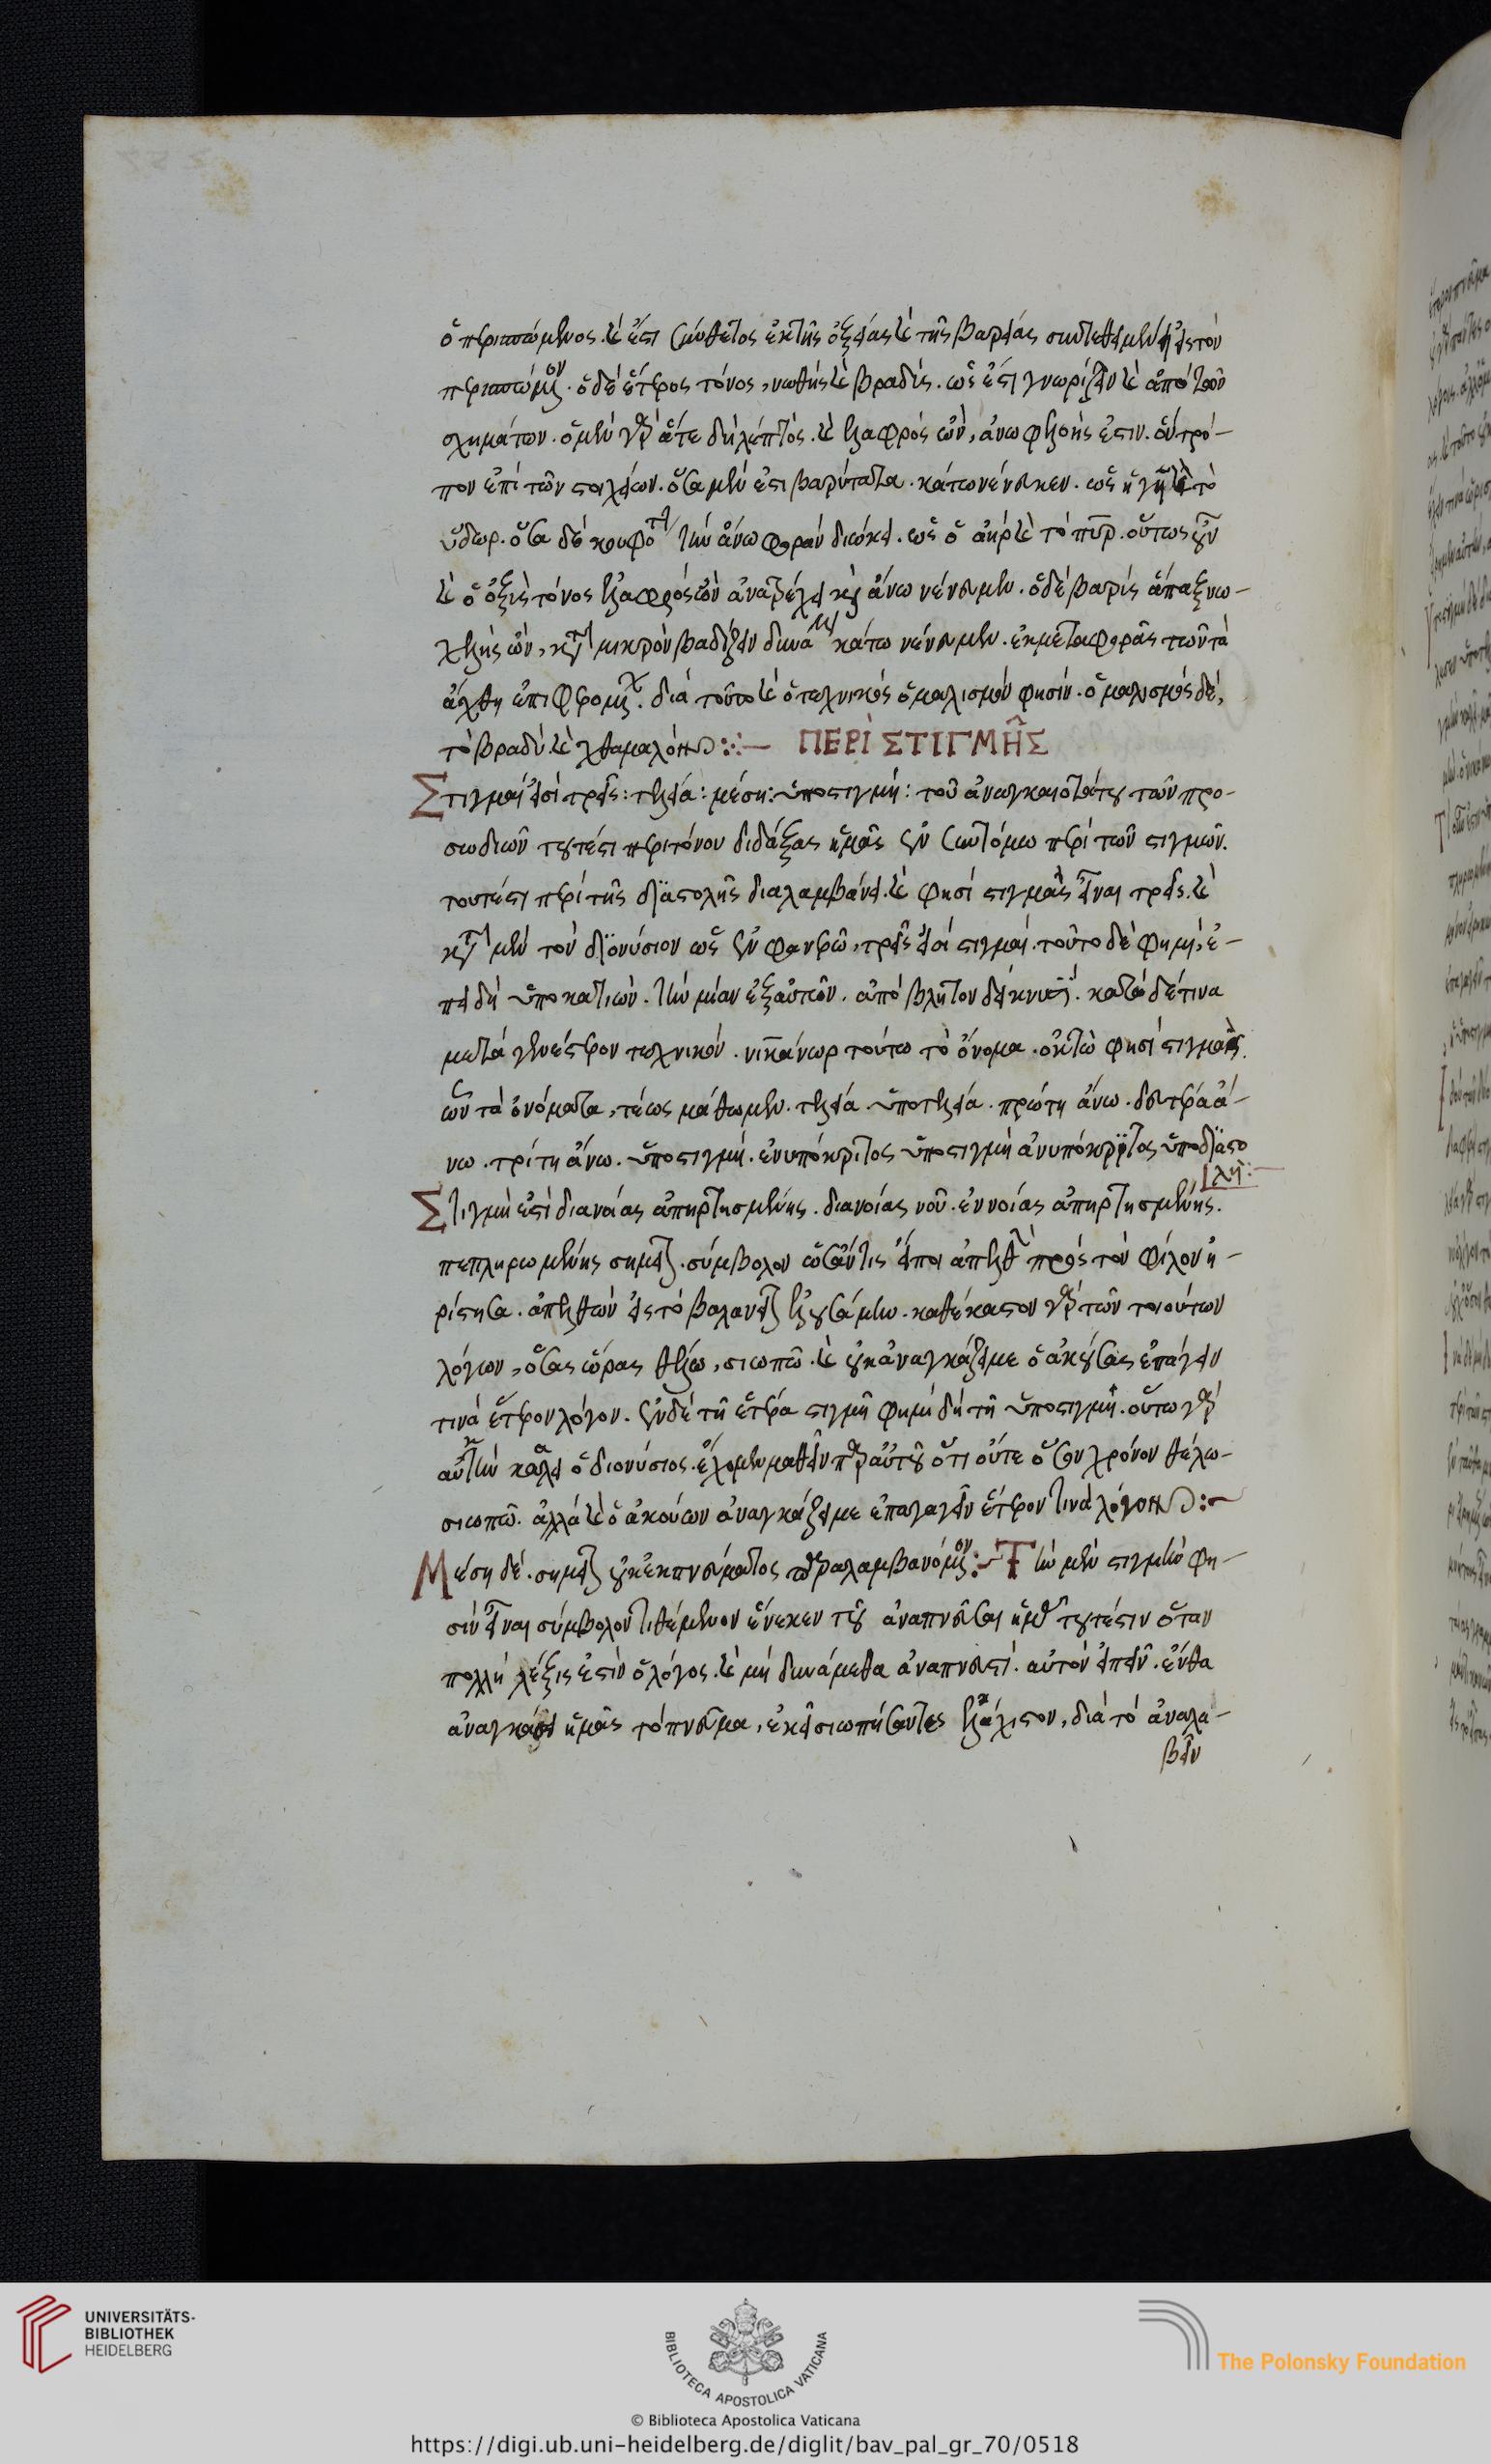 ὁ περισπώμενος. καὶ ἔστι σύνθετος ἐκ τῆς ὀξείας καὶ τῆς βαρείας συντεθειμένη εἰς τὸν
περισπώμενον. ὁ δὲ ἕτερος τόνος, νωθὴς καὶ βραδύς. ὡς ἔστι γνωρίζειν καὶ ἀπὸ τῶν
σχημάτων. ὁ μὲν γὰρ ἅτε δὴ λεπτὸς καὶ ἐλαφρὸς ὤν, ἀνωφερής ἐστιν. ὃν τρό-
πον ἐπὶ τῶν στοιχείων. ὅσα μέν ἐστι βαρύτατα κάτω νένευκεν. ὡς ἡ γῆ καὶ τὸ
ὕδωρ. ὅσα δὲ κουφότατα τὴν ἄνω φορὰν διώκει. ὡς ὁ ἀὴρ καὶ τὸ πῦρ. οὕτως οὖν
καὶ ὁ ὀξὺς τόνος ἐλαφρὸς ὢν ἀνατρέχει καὶ ἄνω νένευμεν. ὁ δὲ βαρὺς ἅπαξ νω-
χελὴς ὤν, κατὰ μικρὸν βαδίζειν δυνάμενος κάτω νένευμεν. ἐκ μεταφορᾶς τῶν τὰ
ἄχθη ἐπιφερομένων. διὰ τοῦτο καὶ ὁ τεχνικὸς ὁμαλισμόν φησίν. ὁμαλισμὸς δέ,
τὸ βραδὺ καὶ χθαμαλόν:— ΠΕΡῚ ΣΤΙΓΜΗ͂Σ
Στιγμαί εἰσι τρεῖς: τελεία: μέση: ὑποστιγμή: τοῦ ἀναγκαιοτάτου τῶν προ-
σωδιῶν τουτέστι περὶ τόνου διδάξας ἡμᾶς ἐν συντόμω περὶ τῶν στιγμῶν.
τουτέστι περὶ τῆς διαστολῆς διαλαμβάνει. καὶ φησὶ στιγμὰς εἶναι τρεῖς. καὶ
κατὰ μὲν τὸν διονύσιον ὡς ἐν φανερῶ, τρεῖς εἰσὶ στιγμαί. τοῦτο δὲ φημί, ἐ-
πειδὴ ὑποκατιὼν τὴν μίαν ἐξ αὐτῶν. ἀπόβλητον δείκνυσι. κατὰ δέ τινα
μεταγενέστερον τεχνικόν. νικάνωρ τούτω τὸ ὄνομα. ὀκτώ φησι στιγμάς.
ὧν τὰ ὀνόματα, τέως μάθωμεν. τελεία. ὑποτελεία. πρώτη ἄνω. δευτέρα ἄ-
νω. τρίτη ἄνω. ὑποστιγμὴ ἐνυπόκριτος ὑποστιγμὴ ἀνυπόκριτος ὑποδιαστο
λή:
Στιγμή ἐστι διανοίας ἀπηρτισμένης. διανοίας νοῦ. ἐννοίας ἀπηρτισμένης.
πεπληρωμένης σημεῖον. σύμβολον ὡσάν τις εἴποι ἀπελθὼν πρὸς τὸν φίλον ἠ-
ρίστησα. ἀπελθὼν εἰς τὸ βαλανεῖον ἐλουσάμην. καθ' ἕκαστον γὰρ τῶν τοιούτων
λόγων, ὅσας ὥρας θέλω, σιωπῶ. καὶ οὐκ ἀναγκάζει με ὁ ἀκούσας ἐπάγειν
τινὰ ἕτερον λόγον. ἐν δὲ τῆ ἑτέρα στιγμῆ φημὶ δὴ τῆ ὑποστιγμῆ. οὕτω γὰρ
αὐτὴν καλεῖ ὁ διονύσιος. ἔχομεν μαθεῖν παρ' αὐτοῦ ὅτι οὔτε ὅσον χρόνον θέλω
σιωπῶ. ἀλλὰ καὶ ὁ ἀκούων ἀναγκάζει με ἐπαγαγεῖν ἕτερόν τινα λόγον:—
Μέση δὲ. σημεῖον οὐκ ἐκ πνεύματος παραλαμβανόμενον:— Τὴν μὲν στιγμήν φη-
σὶν εἶναι σύμβολον τιθέμενον ἕνεκεν τοῦ ἀναπνεῦσαι ἡμᾶς τουτέστιν ὅταν
πολλὴ λέξις ἐστὶν ὁ λόγος. καὶ μὴ δυνάμεθα ἀναπνευστὶ αὐτὸν εἰπεῖν. ἔνθα
ἀναγκάσει ἡμᾶς τὸ πνεῦμα, ἐκεῖ σιωπήσαντες ἐλάχιστον, διὰ τὸ ἀναλα-
βεῖν
UNIVERSITÄTS-
BIBLIOTHEK
HEIDELBERG
BIBLIOTECA APOSTOLICA VATICANA
The Polonsky Foundation
© Biblioteca Apostolica Vaticana
https://digi.ub.uni-heidelberg.de/diglit/bav_pal_gr_70/0518